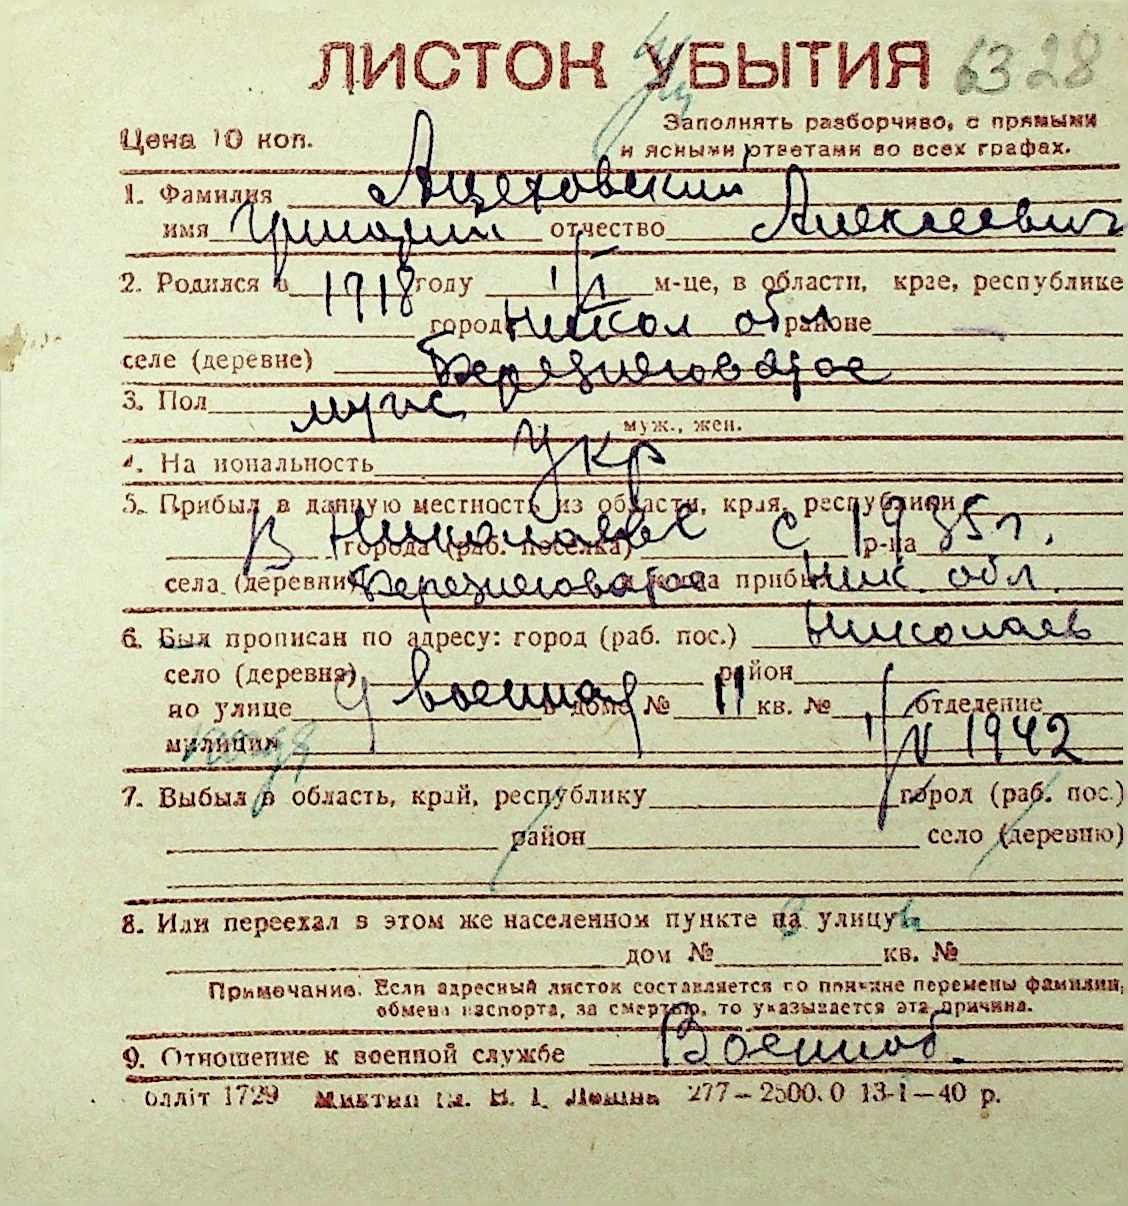 ЛИСТОК УБЫТИЯ 6328
Цена 10 коп.
Заполнять разборчиво, с прямыми
и ясными ответами во всех графах.
1. Фамилия Ацеховский
имя Григорий отчество Алексеевич
2. Родился в 1918 году 1/I м-це, в области, крае, республике
городе Никол обл районе —
селе (деревне) Березнеговатое
3. Пол муж
муж., жен.
4. Национальность Укр
5. Прибыл в данную местность из области, края, республики
В Николаеве с 1935 г.
города (раб. поселка) р-на
села (деревни) Березнеговатое когда прибыл Ник. обл.
6. Был прописан по адресу: город (раб. пос.) Николаев
село (деревня) район
по улице 9 военная в доме № 11 кв. № отделение
милиции 1/V 1942
7. Выбыл в область, край, республику город (раб. пос.)
район село (деревню)
8. Или переехал в этом же населенном пункте на улицу
дом № кв. №
Примечание. Если адресный листок составляется по причине перемены фамилии,
обмена паспорта, за смертью, то указывается эта причина.
9. Отношение к военной службе Военнооб.
блліт 1729 277—2500.0 13-1—40 р.